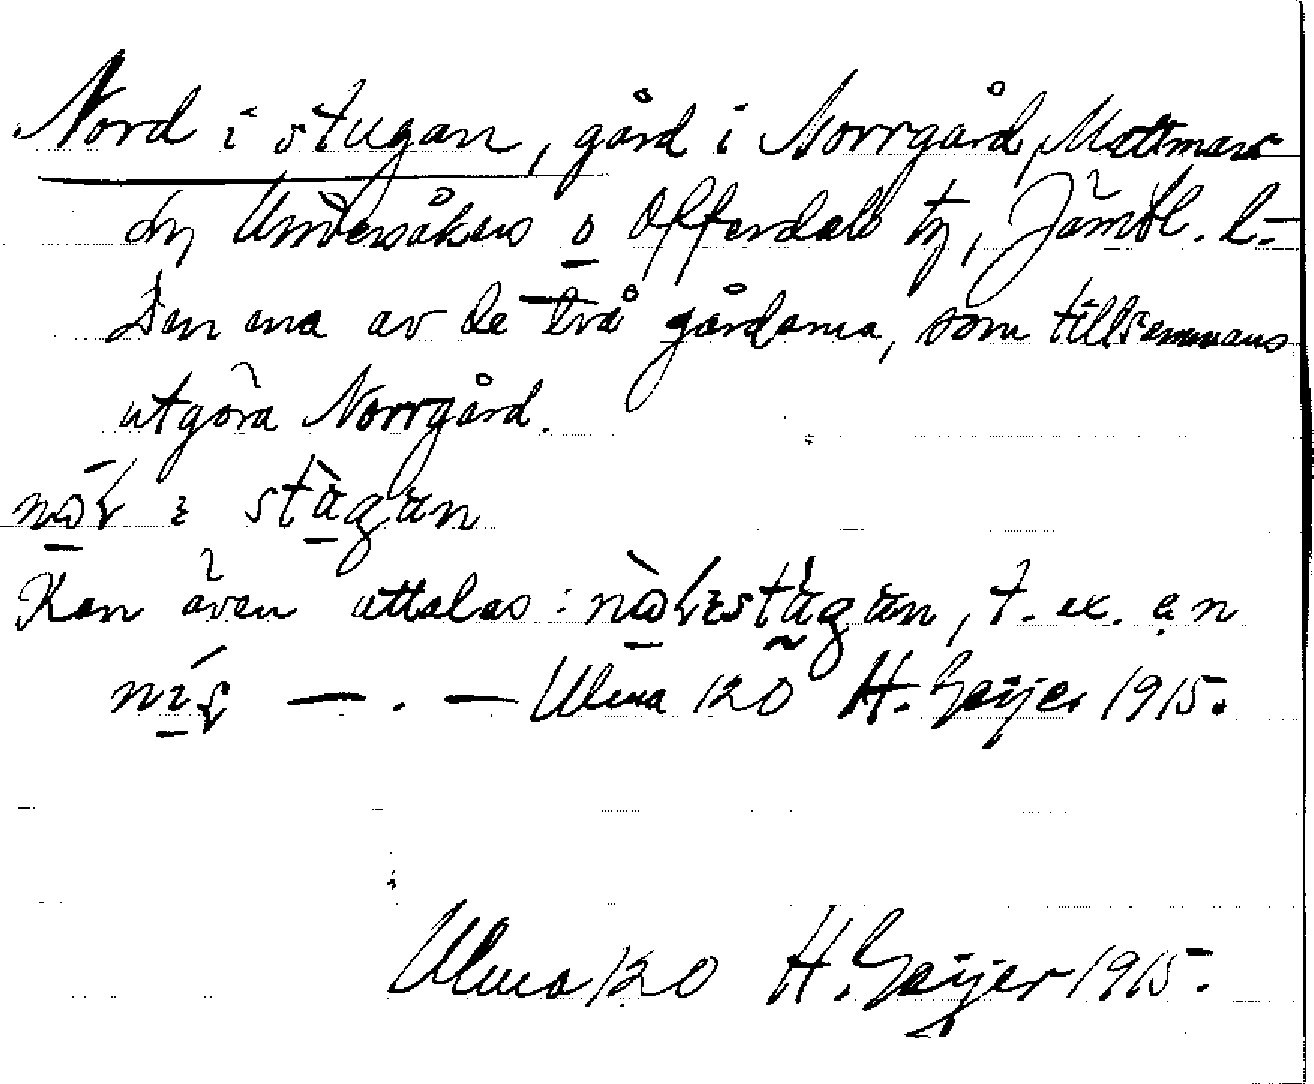 Nord i stugan, gård i Norrgård, Mattmars
sn, Undersåkers o Offerdals tg, Jämtl. l.
Den ena av de två gårdarna, som tillsammans
utgöra Norrgård.
stägän
Kan även uttalas: , t. ex. en
— . — Ulma 120 H. Geijer 1915.
Ulma 120 H. Geijer 1915.